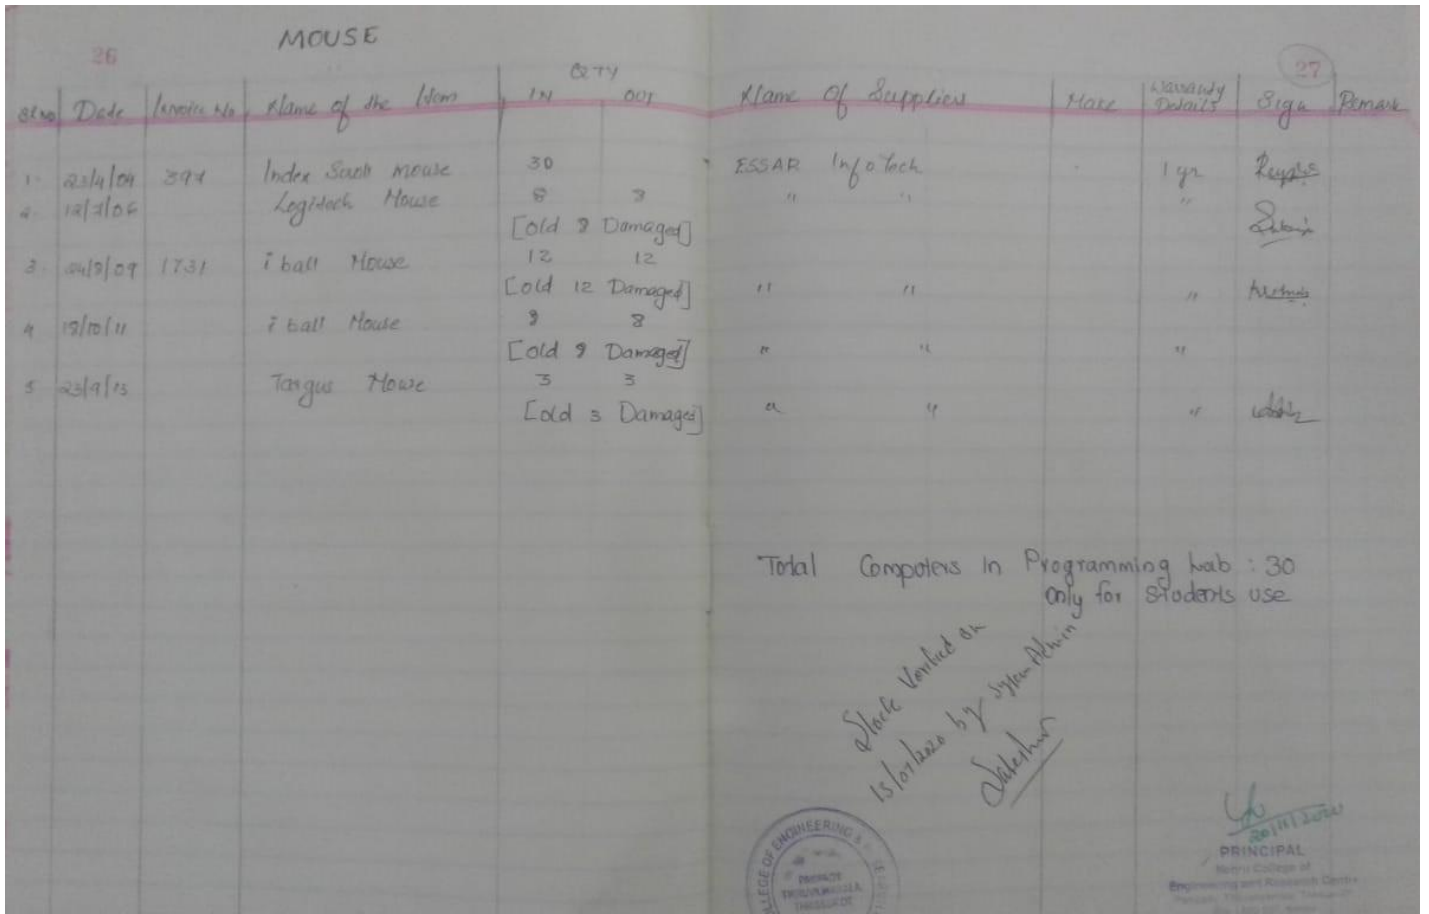 26 MOUSE
27
QTY
Sl No Date Invoice No Name of the Item IN OUT Name Of Supplier Make Warranty Details Sign Remark
1. 23/4/04 394 Index Scroll mouse 30 ESSAR Infotech 1 yr
2. Logitech Mouse 8 8 " " "
[Old 8 Damaged]
3. 1731 i ball Mouse 12 12
[Old 12 Damaged] " " "
4 18/10/11 i ball Mouse 8 8
[Old 8 Damaged] " " "
5 23/9/13 Targus Mouse 3 3
[Old 3 Damaged] " " "
Total Computers In Programming Lab : 30
Only for Students use
Stock Verified on
by System Admin
COLLEGE OF ENGINEERING &
PAMPADY
THIRUVILWAMALA
THRISSUR DT
PRINCIPAL
Nehru College of
Engineering and Research Centre